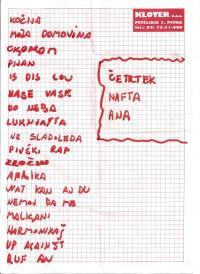 KLOTER d.o.o.
PETELINJE 3, PIVKA
KOČIJA
MOJA DOMOVINA
OKOROM
PIJAN
IS DIS LOU
NAŠE VASE
DO NEBA
LUKNJASTA
NE SLADOLEDA
PIVŠKI RAP
AFRIKA
WAT KAN AJ DU
NEMOJ DA ME
MALIGANI
HARMONIKAŠ
UP AGAINST
RUF AN
ČETRTEK
NAFTA
ANA